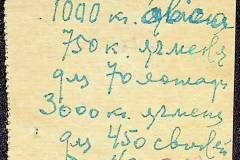 1000 кг. овса
750 к. ячменя
для 70 лошад
3000 кг. ячменя
для 450 свиней